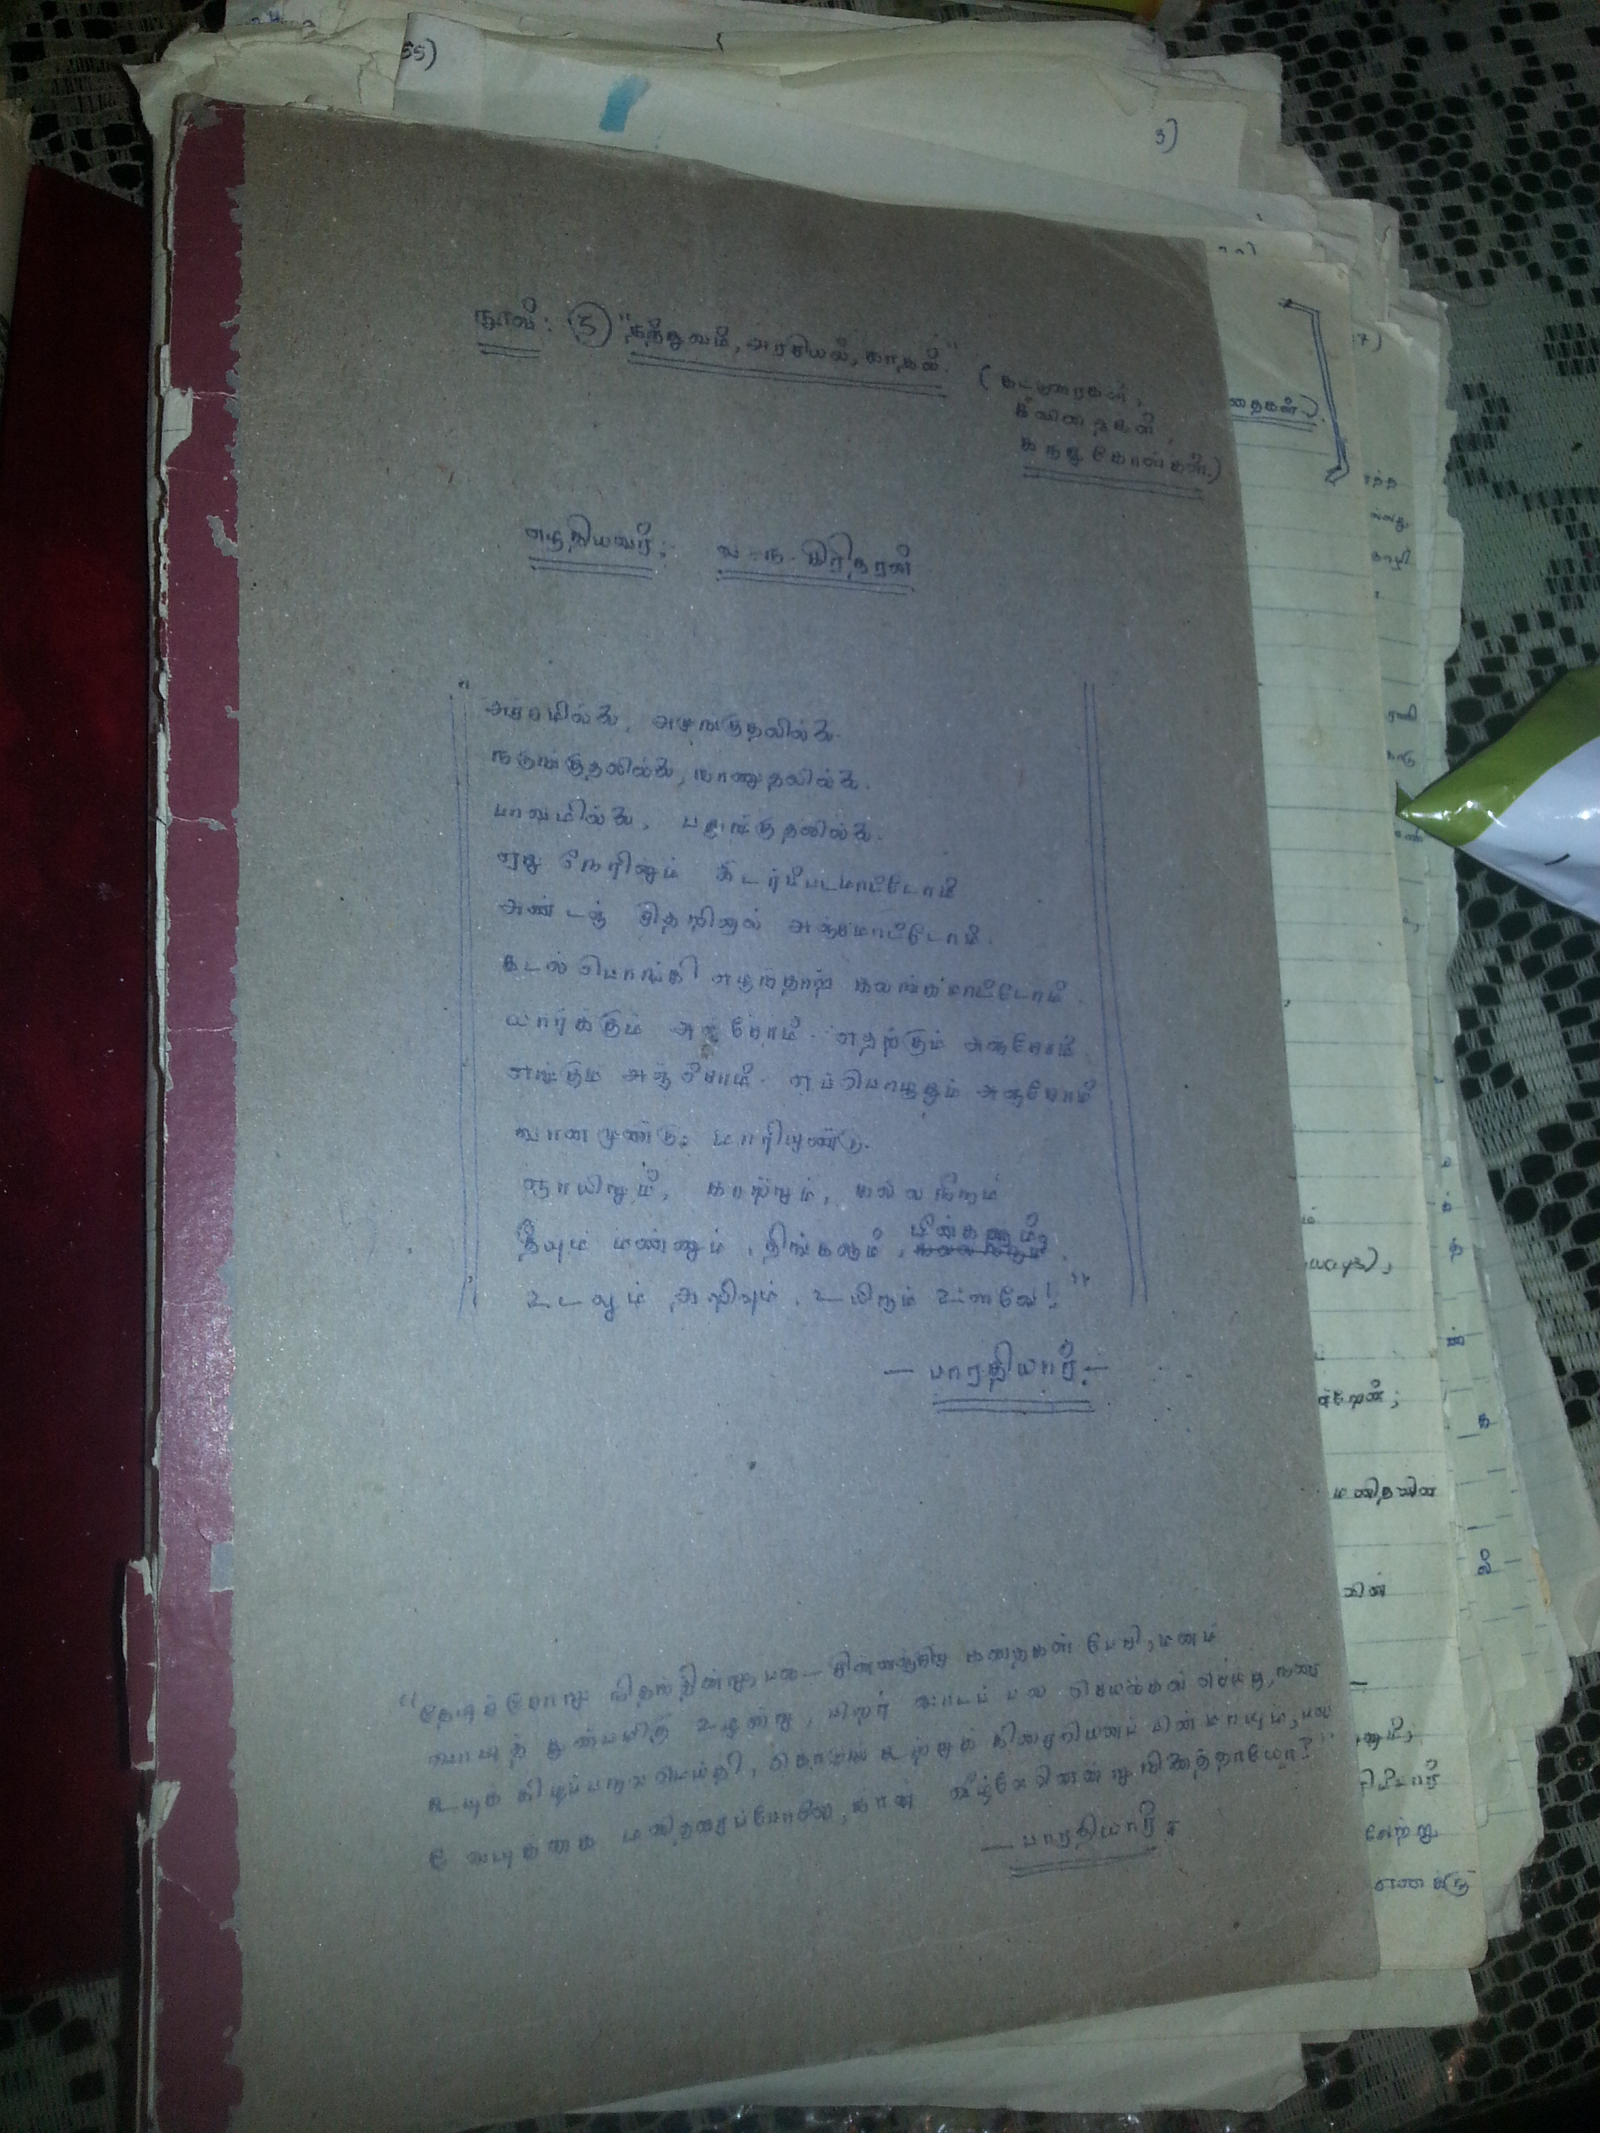 55)
3)
நூல்: ⑤ "தத்துவம், அரசியல், காதல்." (கட்டுரைகள்,
கவிதைகள்,
கருதுகோள்கள்.)
எழுதியவர்: வ.ந.கிரிதரன்
"அச்சமில்லை, அமுங்குதலில்லை.
நடுங்குதலில்லை, நாணுதலில்லை.
பாவமில்லை, பதுங்குதலில்லை.
ஏது நேரினும் இடர்ப்படமாட்டோம்
அண்டஞ் சிதறினால் அஞ்சமாட்டோம்.
கடல் பொங்கி எழுந்தாற் கலங்கமாட்டோம்.
யார்க்கும் அஞ்சோம். எதற்கும் அஞ்சோம்
எங்கும் அஞ்சோம். எப்பொழுதும் அஞ்சோம்
வானமுண்டு; மாரியுண்டு.
ஞாயிறும், காற்றும், நல்லநீரும்
தீயும் மண்ணும், திங்களும், மீன்களும்,
உடலும் அறிவும், உயிரும் உளவே!"
— பாரதியார். —
"தேடிச்சோறு நிதந்தின்று பல — சின்னஞ்சிறு கதைகள் பேசி, மனம்
வாடித் துன்பமிக உழன்று, பிறர் வாடப் பல செயல்கள் செய்து, நரை
கூடிக் கிழப்பருவமெய்தி, கொடுங் கூற்றுக் கிரையெனப் பின் மாயும், பல
வேடிக்கை மனிதரைப்போலே, நான் வீழ்வேனென்று நினைத்தாயோ?"
— பாரதியார்;
தைகள்.)
7)
மனிதனின்
வேற்று
எனக்கு